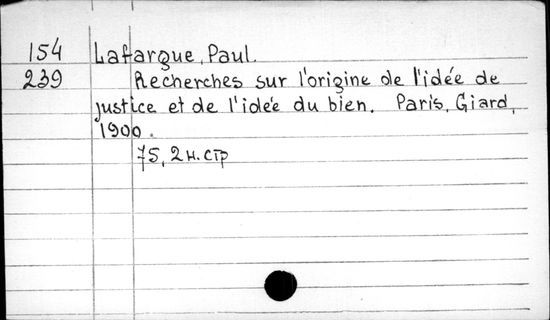 154 Lafargue, Paul.
239 Recherches sur l'origine de l'idée de
justice et de l'idée du bien. Paris, Giard,
1900.
75, 2 н. стр